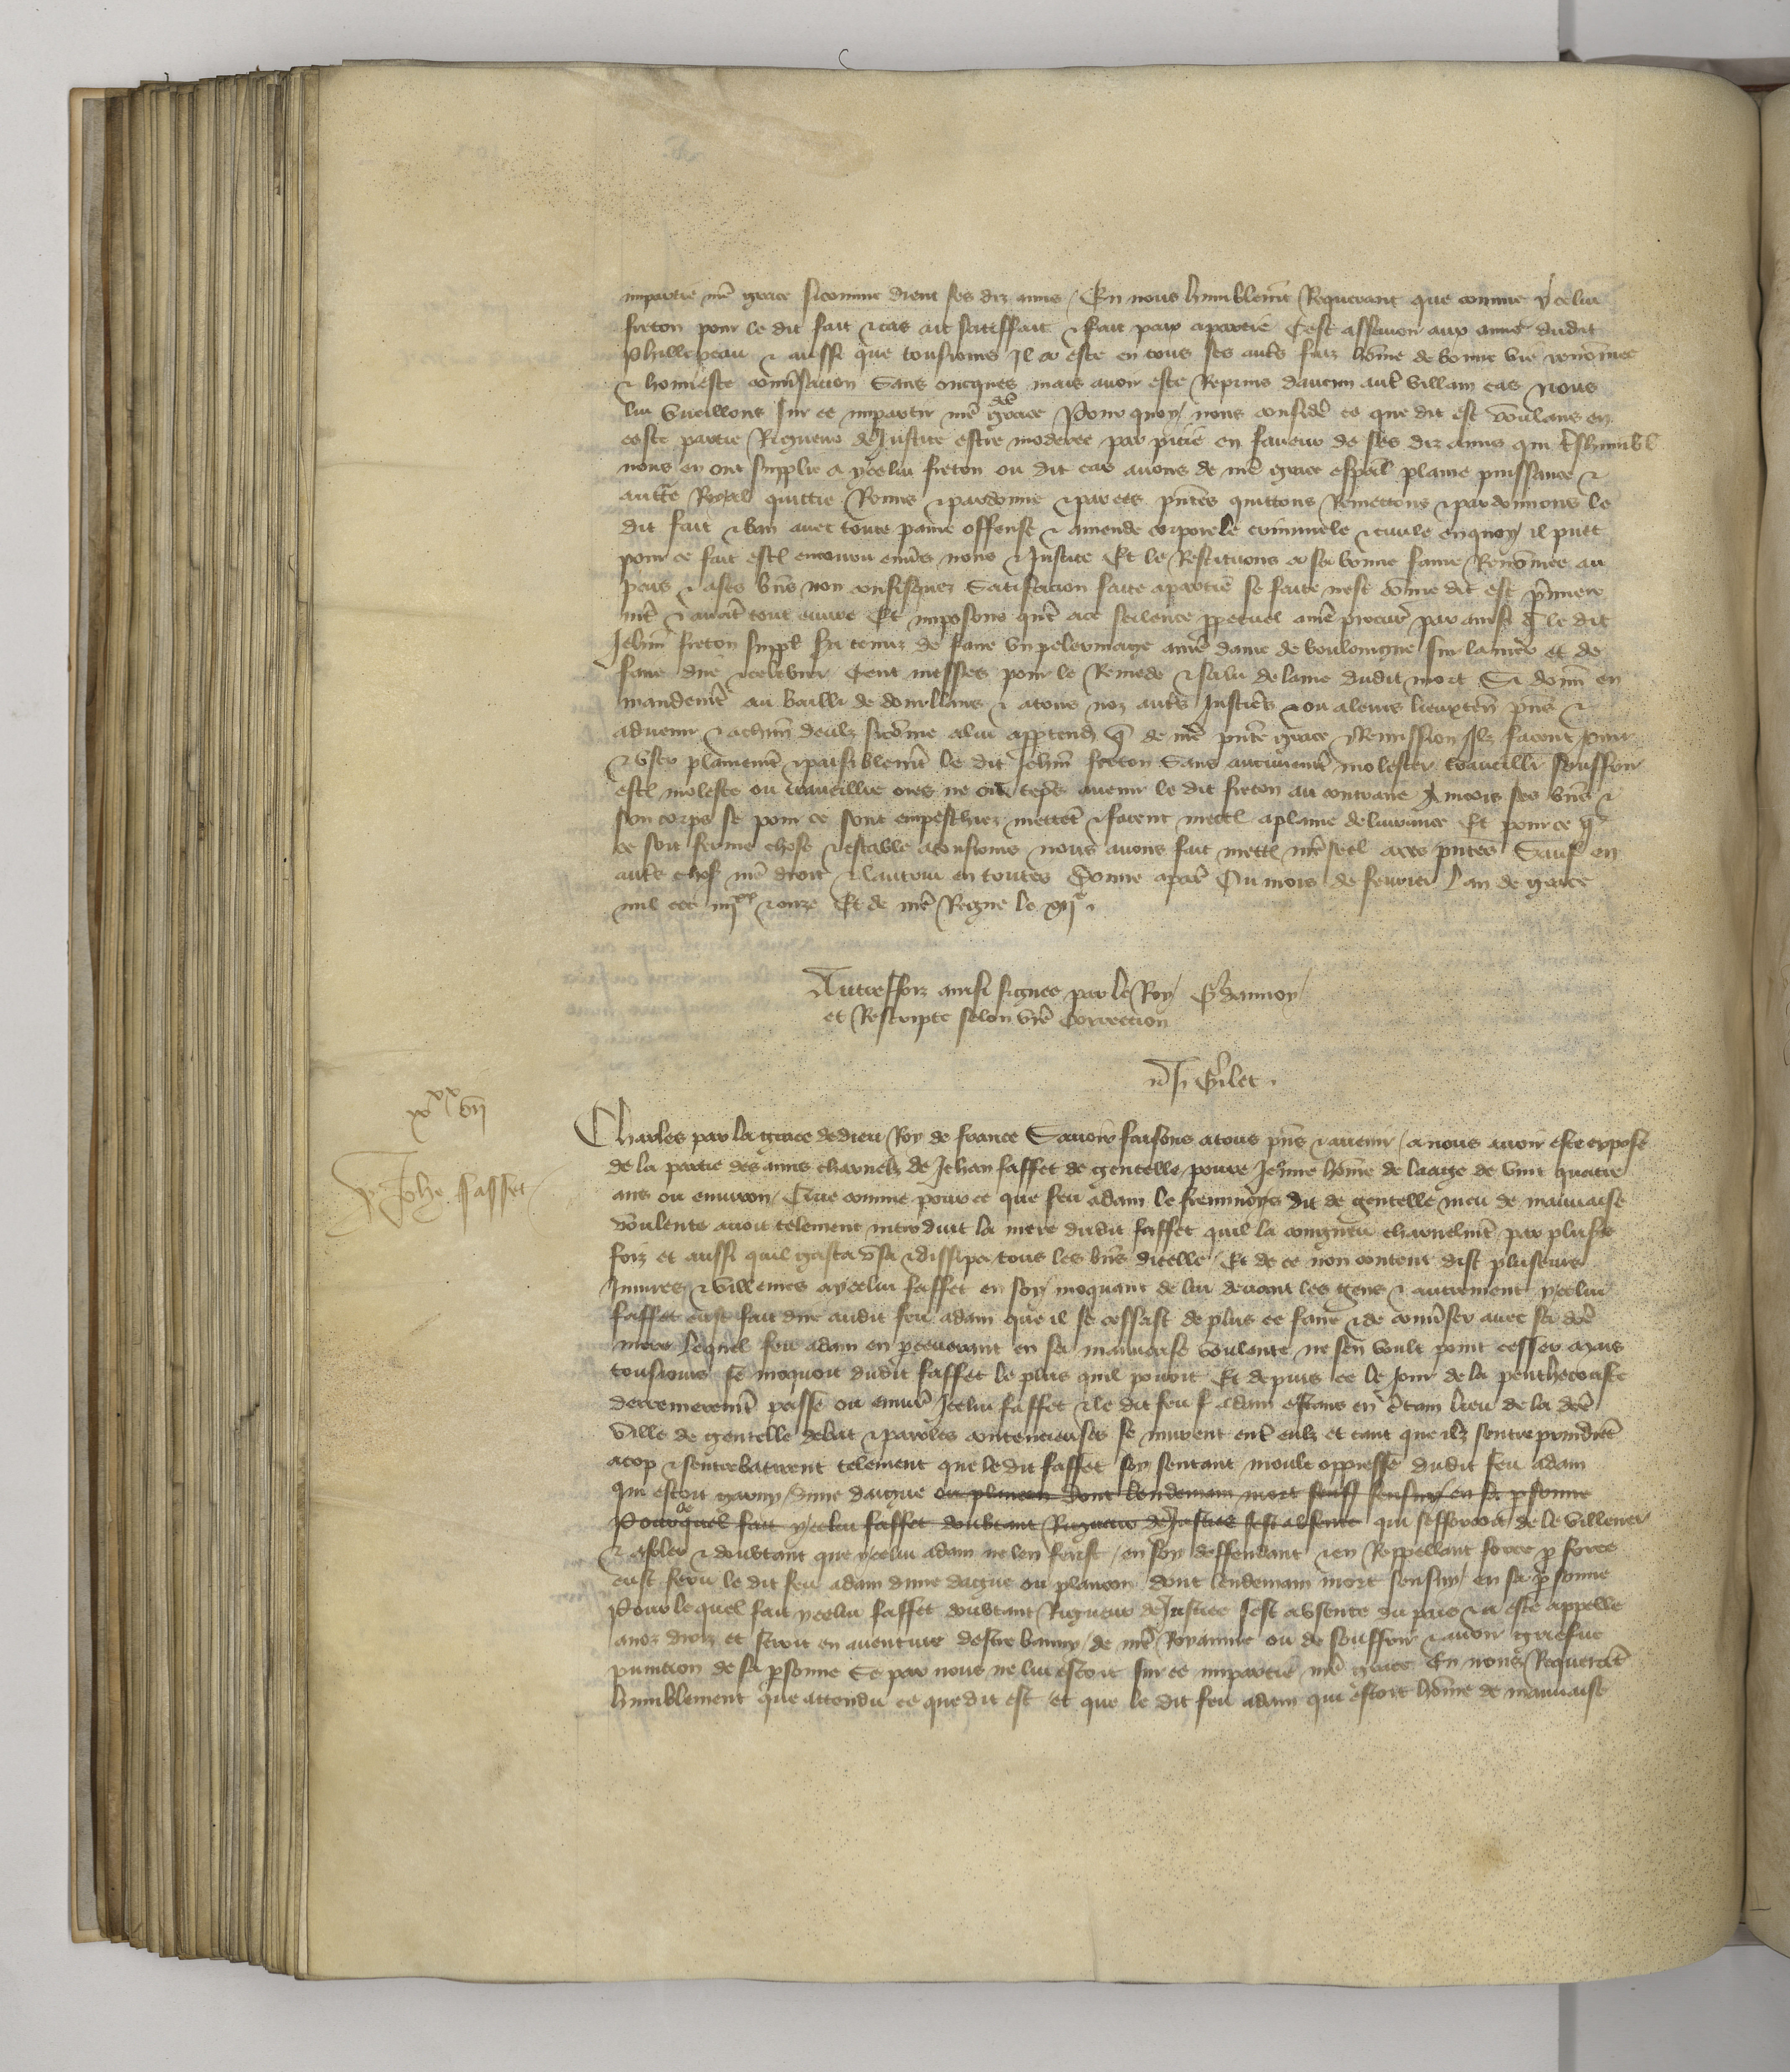 impartie nr̃e grace sicomme dient ses diz amis / En nous humblemẽt Requerant que comme ycelui
freton pour le dit fait & cas ait satiffait & fait paix a partie Cest assavoir aux amis dudit
Phillepeau & aussi que tousiours Il a este en tous ses autr̃s faiz hõme de bonne vie renõmee
& honneste conũsacion Sans oncques mais avoir este Reprins daucun autr̃ villain cas Nous
lui vueillons sur ce impartir nr̃e dc̃e grace Pour quoy / nous consider̃ ce que dit est voulans en
ceste partie Rigueur de Justice estre moderee par pitie en faveur de ses diz amis qui tr̃shumbl̃
nous en ont supplie a ycelui freton ou dit cas avons de nr̃e grace esp̃al plaine puissance &
autt̃e Royal quittie Remis & pardonne & par ces p̃ntes quittons Remettons & pardonnons le
dit fait & ban avec toute paine offense & amende corporele criminele & civile en quoy / il puet
pour ce fait estr̃ encouru envs̃ nous & Justice Et le Restituons a sa bonne fame Renõmee au
pais & a ses bñs non confisquez Satisfacion faite a partie se faite nest cõme dit est p̃mier
mt̃ & avãt tout euvre Et imposons quãt a ce scilence ppetuel a nr̃e procur̃ par ainsi q̃ le dit
Jehan freton suppl̃ sera tenuz de faire un pelerinage a nr̃e dame de bouloingne sur la mer et de
faire dire & celebrer Cent messes pour le Remede & salu de lame dudit mort Si donñ en
mandemẽt au bailli de dourllans & a tous noz autr̃s Justic̃s & ou a leurs lieuxteñ p̃ns &
advenir & a chũn deulz sicõme a lui apptendra q̃ de nr̃e p̃nte grace & Remission Ilz facent Joir
& user plainemẽt & paisiblemẽt le dit Jehan freton Sans aucunemẽt molester travaillr̃ souffrir
estr̃ moleste ou travaillie ores ne ou tẽps avenir le dit freton au contraire Aincois ses bñs &
son corps se pour ce sont empeschiez mettẽt & facent mettr̃ a plaine delivrance Et pour ce q̃
ce soit ferme chose & estable a tousiours nous avons fait mettr̃ nr̃e seel a ces p̃ntes Sauf en
autr̃s chos̃ nr̃e droit & lautrui en toutes Donne a paris Ou mois de fevrier Lan de grace
mil ccc iiij xx & onze Et de nr̃e Regne le xij e .
Autreffoiz ainsi signee par le Roy / G daunoy /
et Rescripte selon vr̃e Correction
J Gilet .
xx
x vij
p Johe fasset
Charles par la grace de dieu Roy de france Savoir faisons a tous p̃ns & avenir / a nous avoir este expose
de la partie des amis charnelz de Jehan fasset de gentelle povre Jeune hõme de laage de vint quatre
ans ou environ / Que comme pour ce que feu adam le fremmoys dit de gentelle meu de mauvaise
voulente avoit telement introduit la mere dudit fasset quil la congneu charnelmt̃ par plusrs̃
foiz et aussi quil gasta usa & dissipa tous les bñs dicelle / Et de ce non content dist plusieurs
Injures & villenies a ycelui fasset en soy / moquant de lui devant les gens & autrement ycelui
fasset eust fait dire audit feu adam que il se cessast de plus ce faire & de conũser avec sa dc̃e
mere Lequel feu adam en pseverant en sa mauvaise voulente ne sen voult point cesser Mais
tousiours se moquoit dudit fasset le plus quil povoit Et depuis ce le Jour de la penthecouste
derrenieremt̃ passe ou envir̃ Icelui fasset & le dit feu f adam estans en c̃tain lieu de la dc̃e
ville de gentelle debat & paroles contencieuses se murent entr̃ eulz et tant que ilz sentreprindrẽt
a cop & sentrebatirent telement que le dit fasset soy sentant moult oppresse dudit feu adam
qui estoit garny / dune dague ou plancon dont lendemain mort sensuy / en sa psonne
Pour le quel fait ycelui fasset doubtant Rigueur de Justice sest absente qui sefforcoit de le villener
& afoler & doubtant que ycelui adam ne len ferist / en soy deffendant & en Reppellant force p force
eust feru le dit feu adam dune dague ou plancon dont lendemain mort sensuy / en sa psonne
Pour le quel fait ycelui fasset doubtant Rigueur de Justice sest absente du pais & a este appelle
a noz droiz et seroit en aventure destre banny / de nr̃e Royaume ou de souffrir & avoir griefue
punicion de sa psonne Se par nous ne lui estoit sur ce impartie nr̃e grace En nous Requerãt
humblement que attendu ce que dit est et que le dit feu adam qui estoit hõme de mauvaise